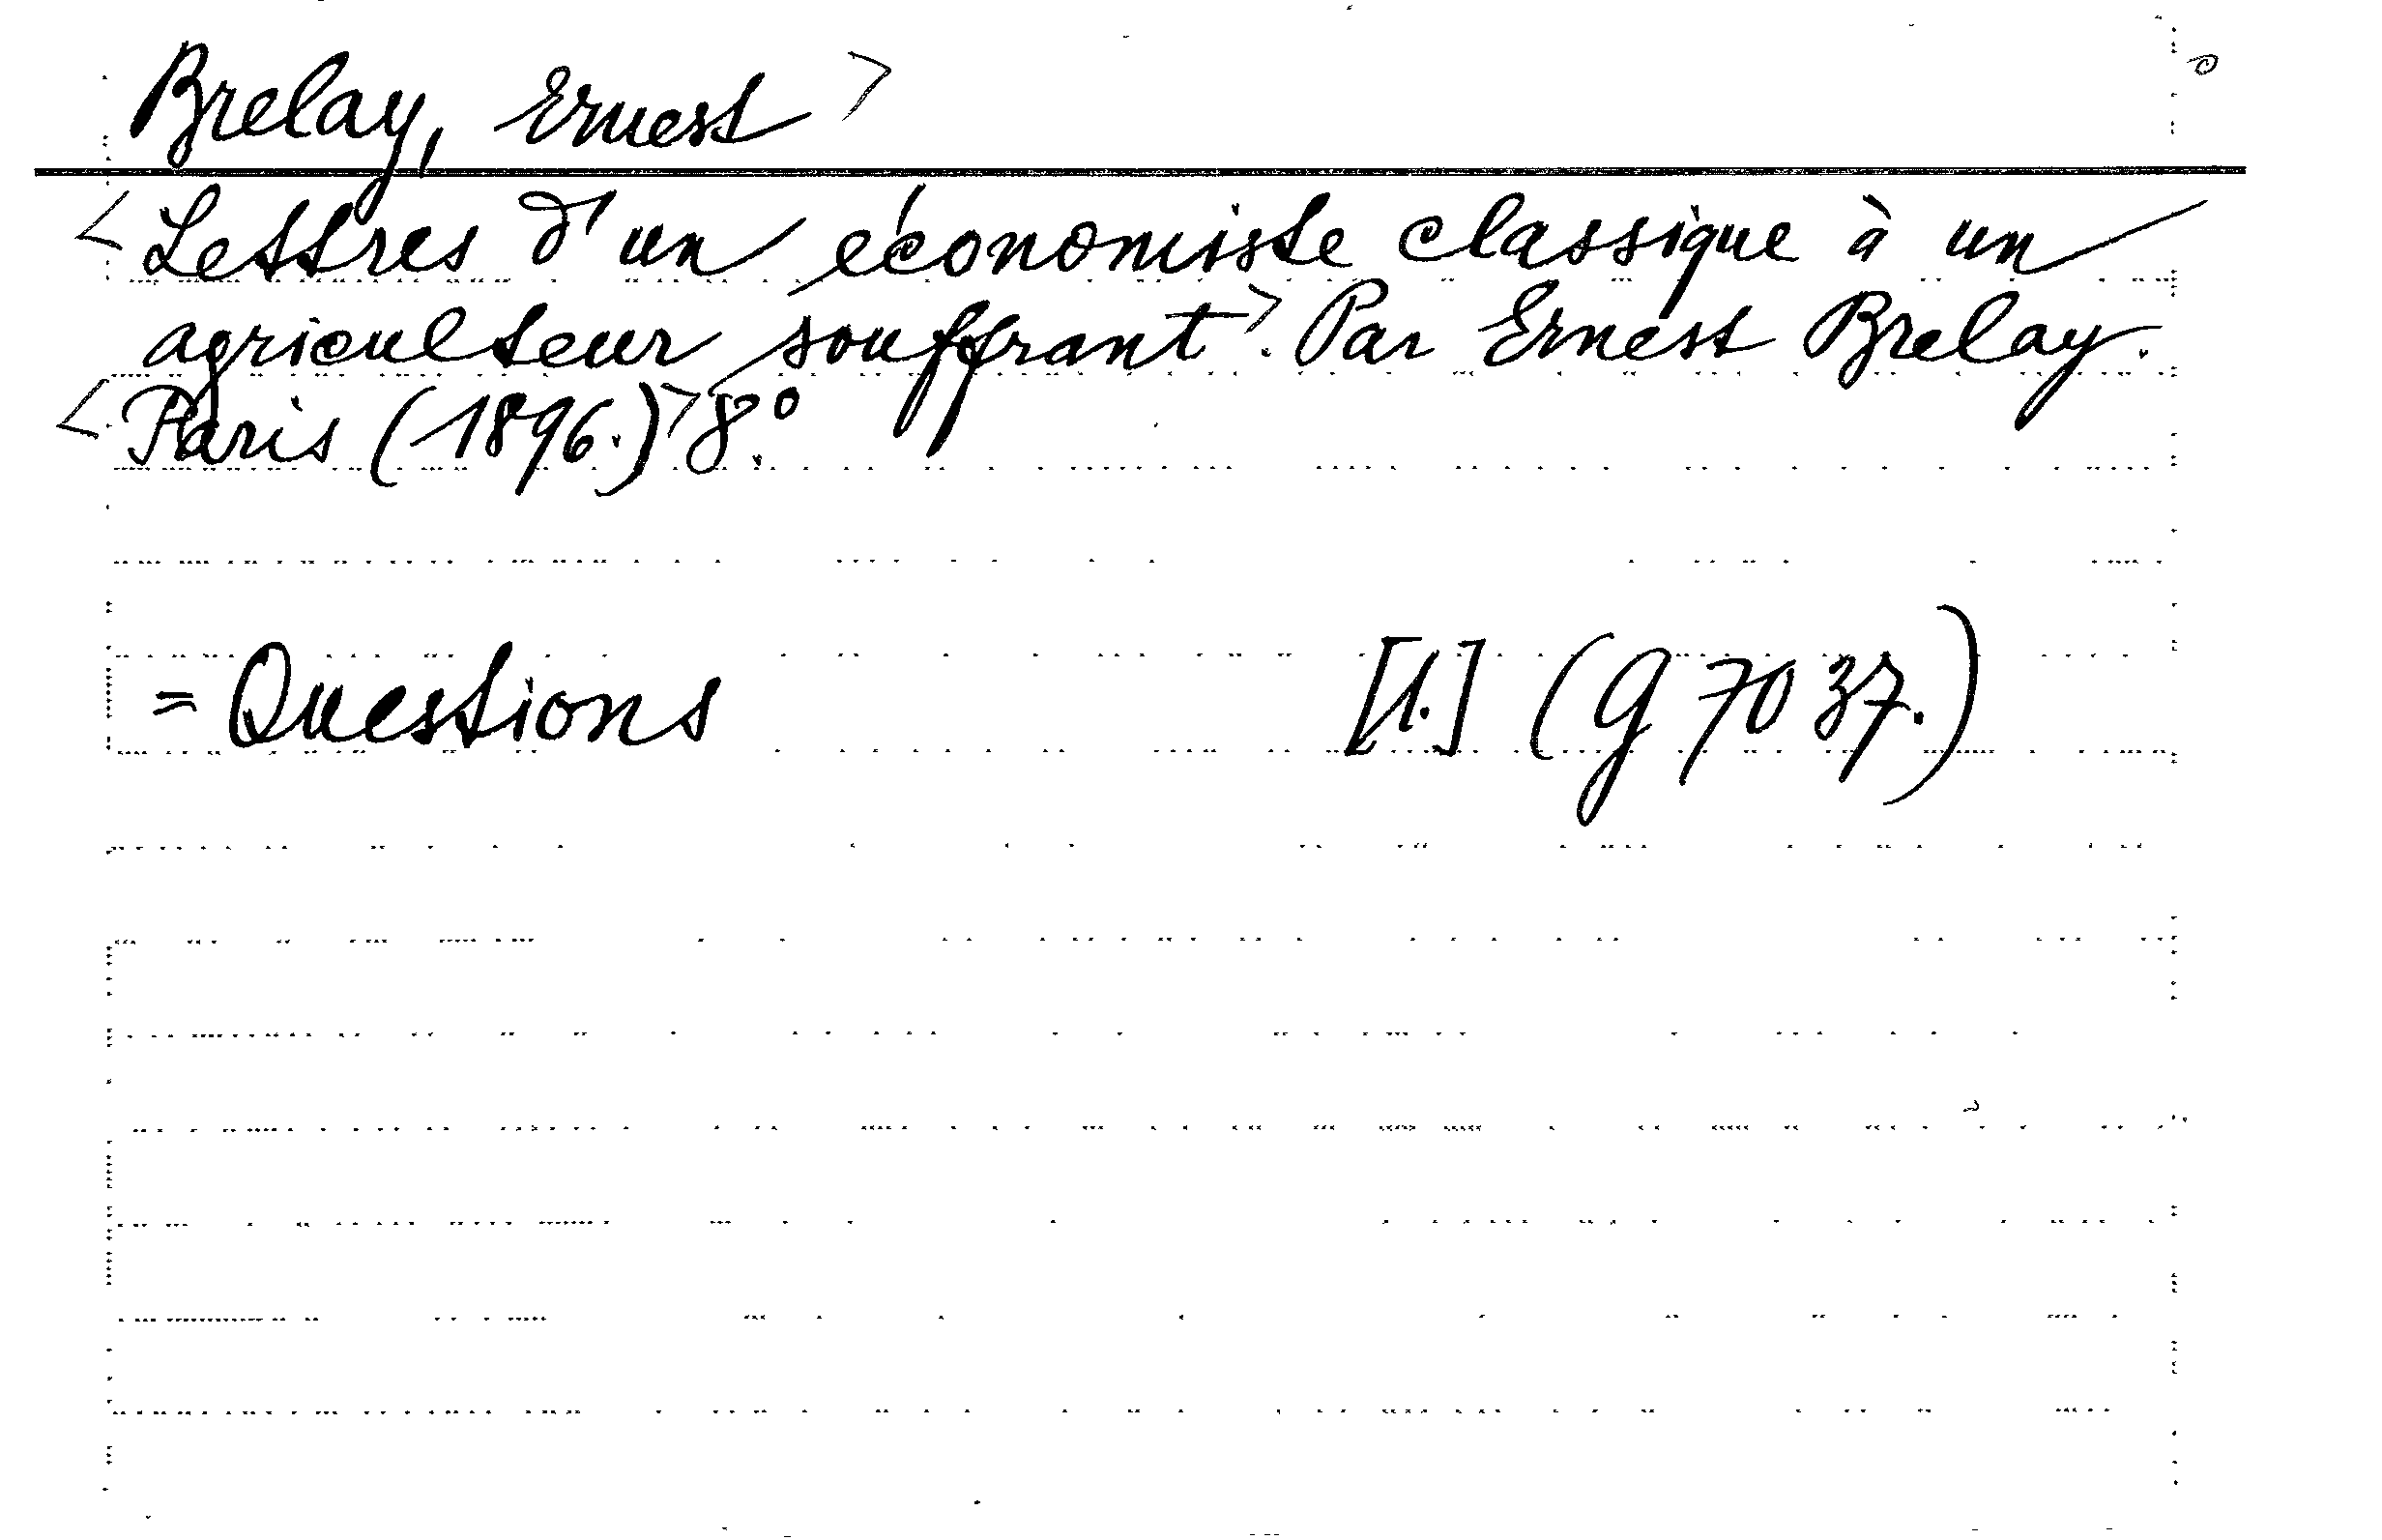 Brelay, Ernest >
< Lettres d'un économiste classique à un
agriculteur souffrant >. Par Ernest Brelay.
< Paris (1896.) > 8.º
= Questions [1.] (G 7037.)